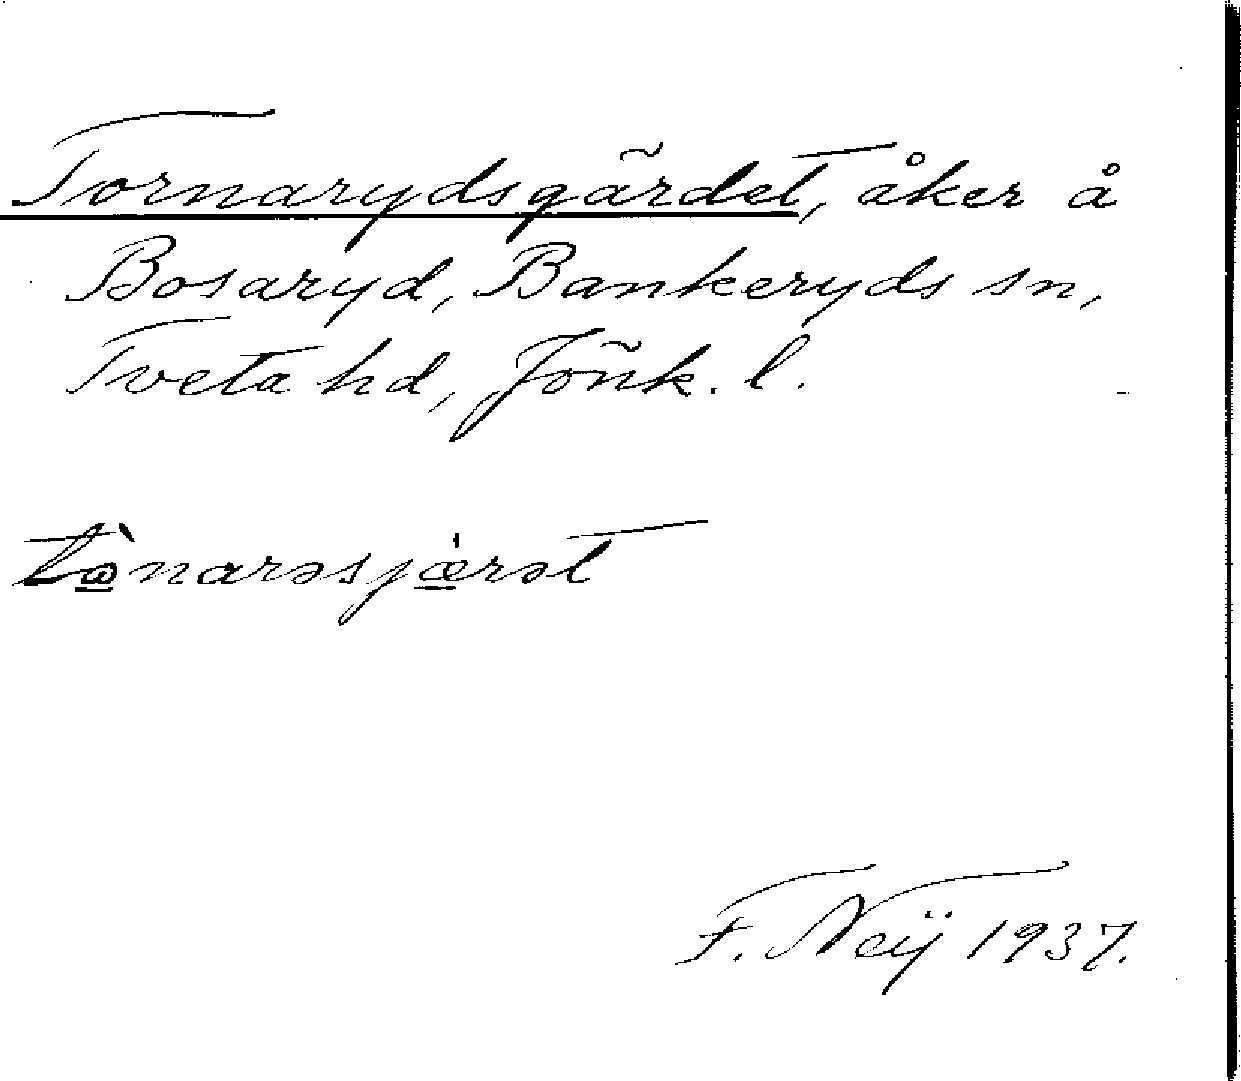 Tornarydsgärdet, åker å
Bosaryd, Bankeryds sn,
Tveta hd, Jönk. l.
tⱺ̀narəsjæ̀rət
F. Neÿ 1937.